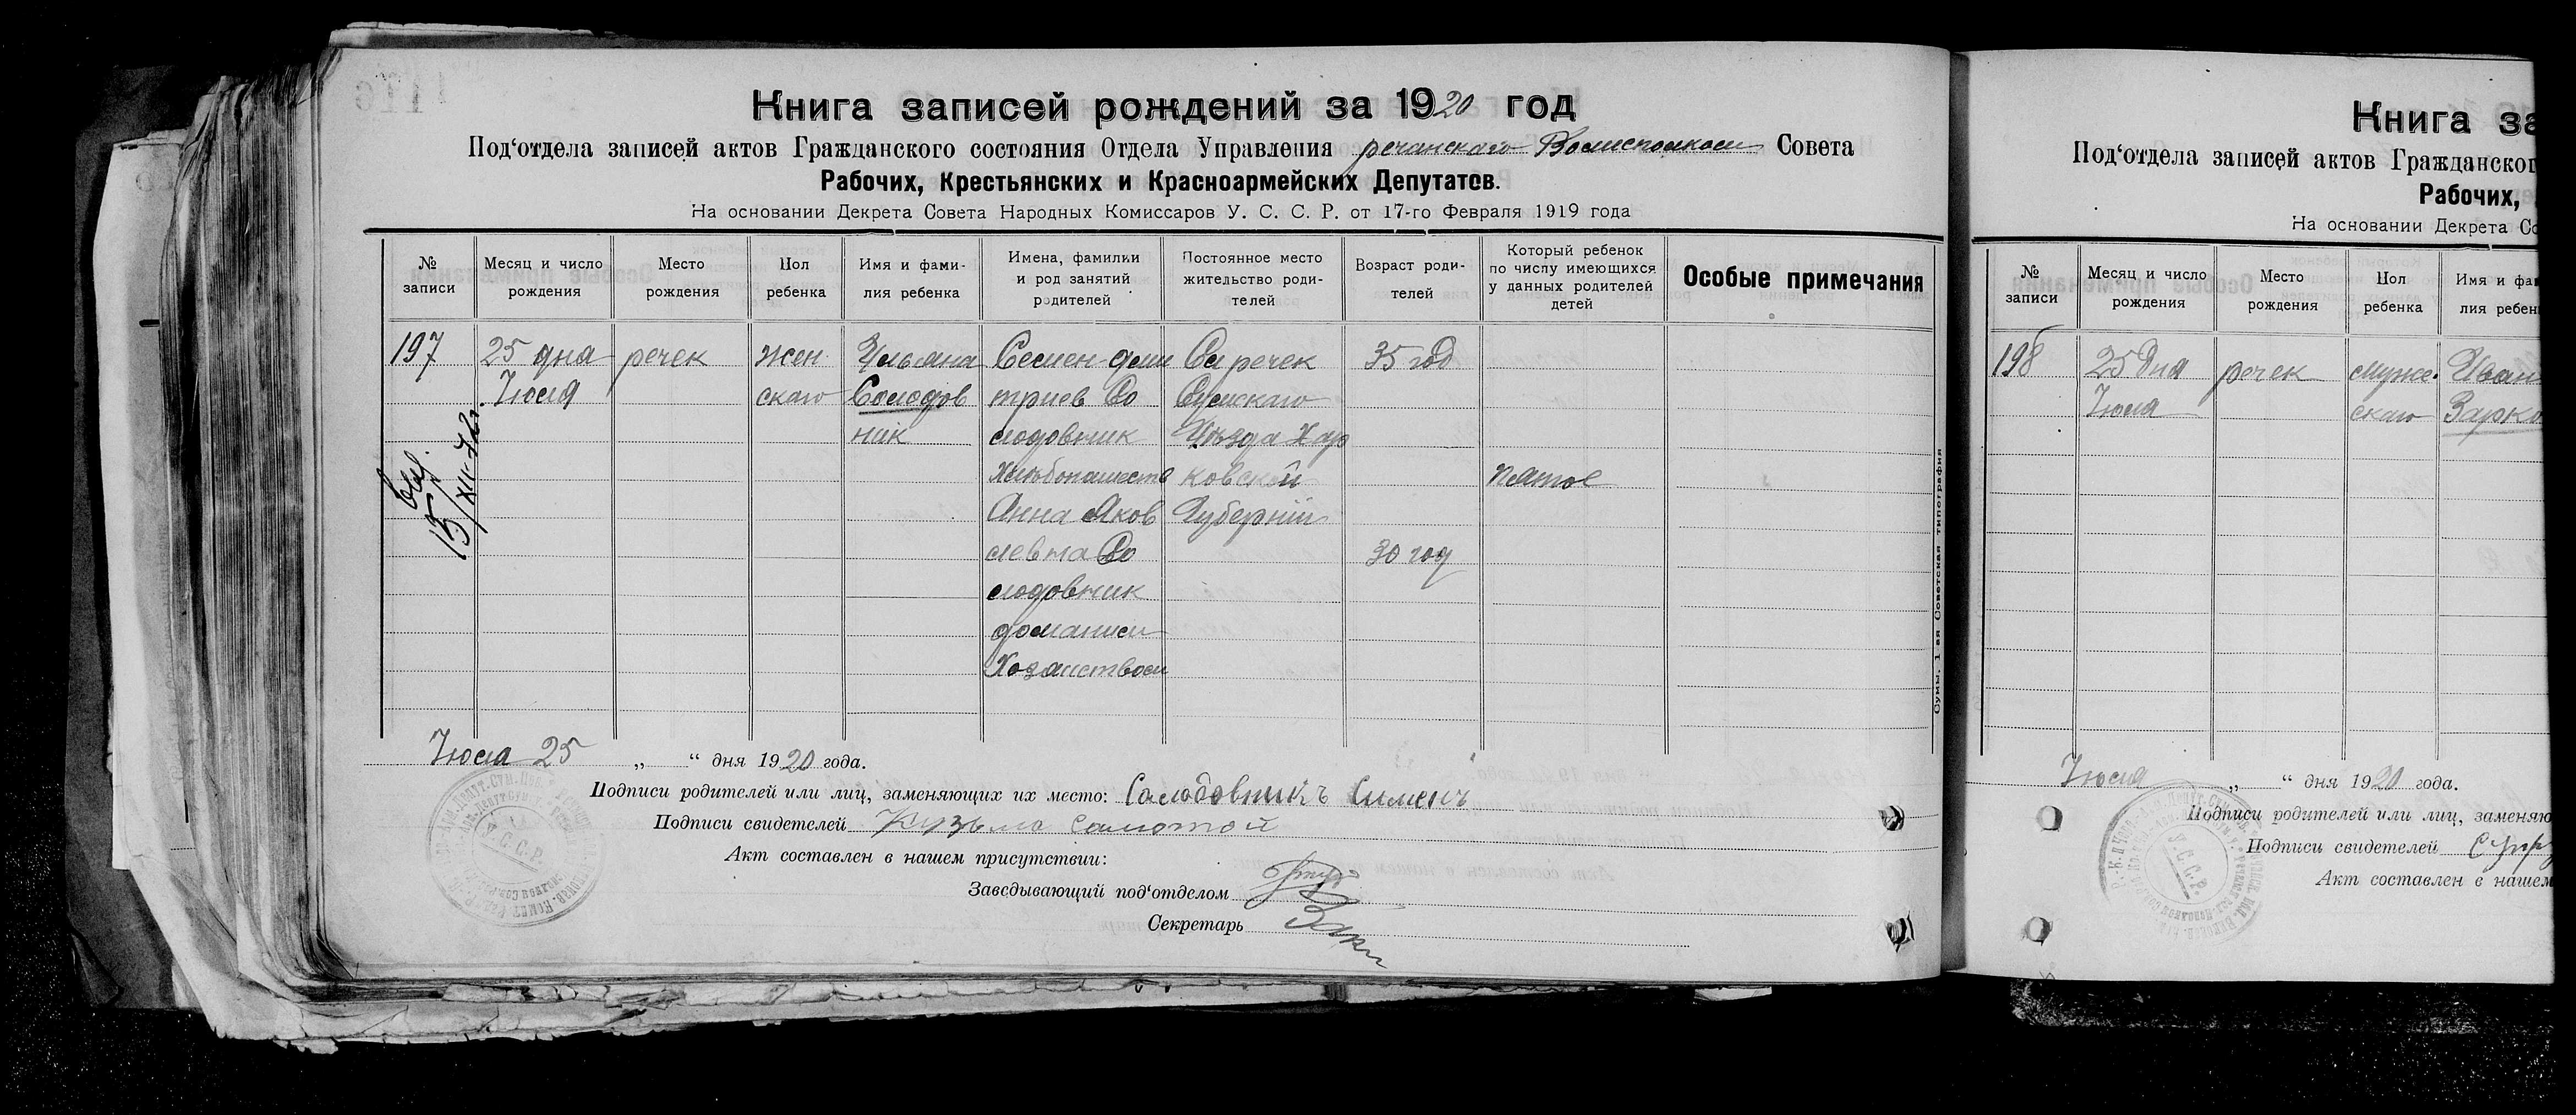 Книга записей рождений за 1920 год
Под‘отдела записей актов Гражданского состояния Отдела Управления речанскаго Волисполком Совета
Рабочих, Крестьянских и Красноармейских Депутатов.
На основании Декрета Совета Народных Комиссаров У. С. С. Р. от 17-го Февраля 1919 года
№ записи
Месяц и число рождения
Место рождения
Пол ребенка
Имя и фами-
лия ребенка
Имена, фамилии
и род занятий
родителей
Постоянное место
жительство роди-
телей
Возраст роди-
телей
Который ребенок
по числу имеющихся
у данных родителей
детей
Особые примечания
197
25 дна
Июля
речек
жен
скаго
Ульяна
Солодов
ник
Семен дми
триев Со
лодовник
Хлебопашеств
Анна Яков
левна Со
лодовник
домашнем
Хозаиством
Сл речек
Сумскаго
Уезда Хар
ковской
Губернии
35 год
30 год
пятое
15/XII-72г.
Июля 25 „ “ дня 1920 года.
Подписи родителей или лиц, заменяющих их место: Саладовникъ Сименъ
Подписи свидетелей Кузьма Самотой
Акт составлен в нашем присутствии:
Заведывающий под‘отделом
Секретарь
Сумы. 1-ая Советская типография
У.С.С.Р.
Книга за
Под‘отдела записей актов Гражданског
Рабочих,
На основании Декрета Со
№ записи
Месяц и число рождения
Место рождения
Пол ребенка
Имя и фа
лия ребен
198
25 Дня
Июля
речек
муже
скаго
Иван
Зарко
Июля „ “ дня 1920 года.
Подписи родителей или лиц, заменяю
Подписи свидетелей
Акт составлен в нашем
У.С.С.Р.